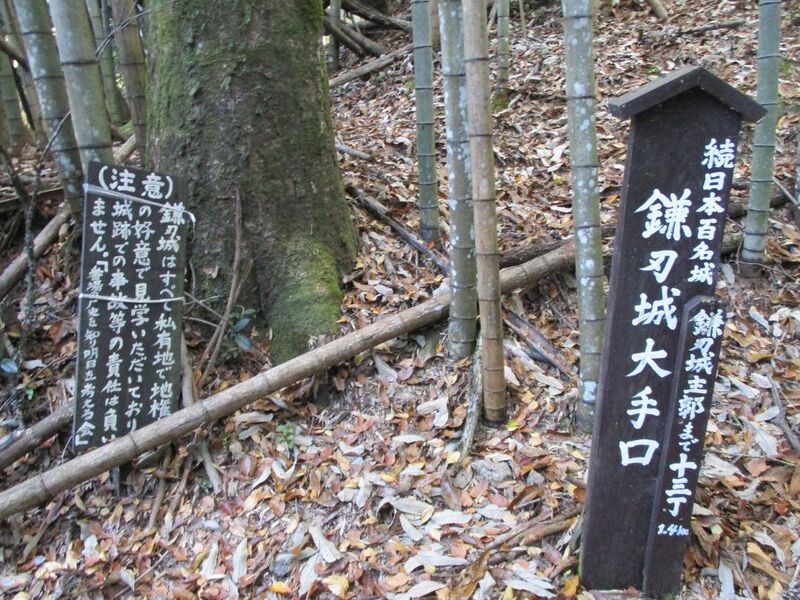 続日本百名城
鎌刃城大手口
鎌刃城主郭まで十三丁
1.4km
(注意)
鎌刃城はすべて私有地で地権
の好意で見学いただいており
城跡での事故等の責任は負い
ません。「番場の史を郭明日を考える会」